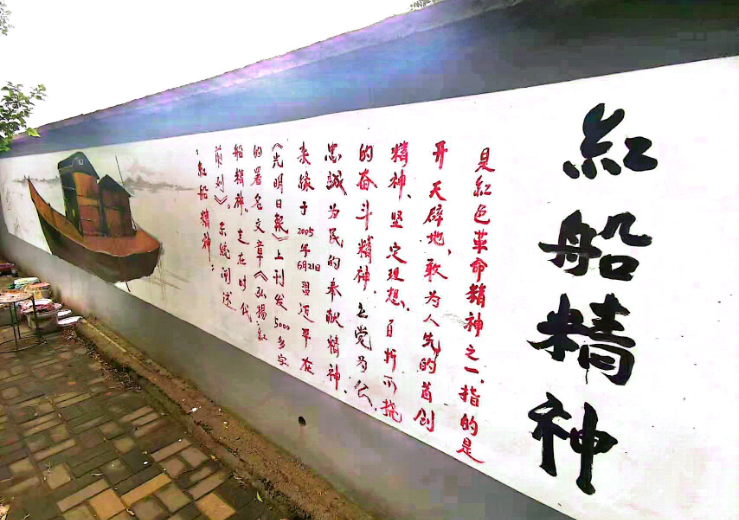 紅船精神
是紅色革命精神之一,指的是
开天辟地、敢为人先的首创
精神,坚定理想、百折不挠
的奋斗精神,立党为公、
忠誠为民的奉献精神。
来缘于2005年6月21日習近平在
《光明日報》上刊发5000多字
的署名文章《弘揚"紅
船精神"走在时代
前列》。系統阐述
"紅船精神":